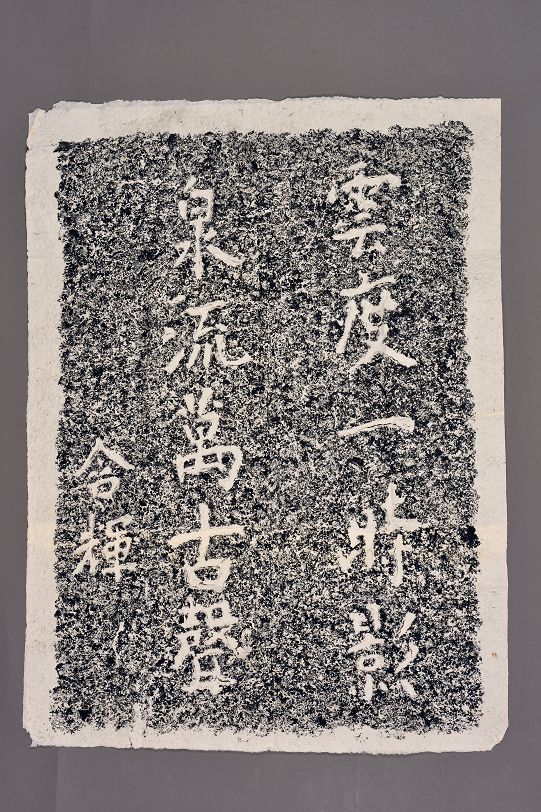 雲度一時影
泉流萬古聲
含輝